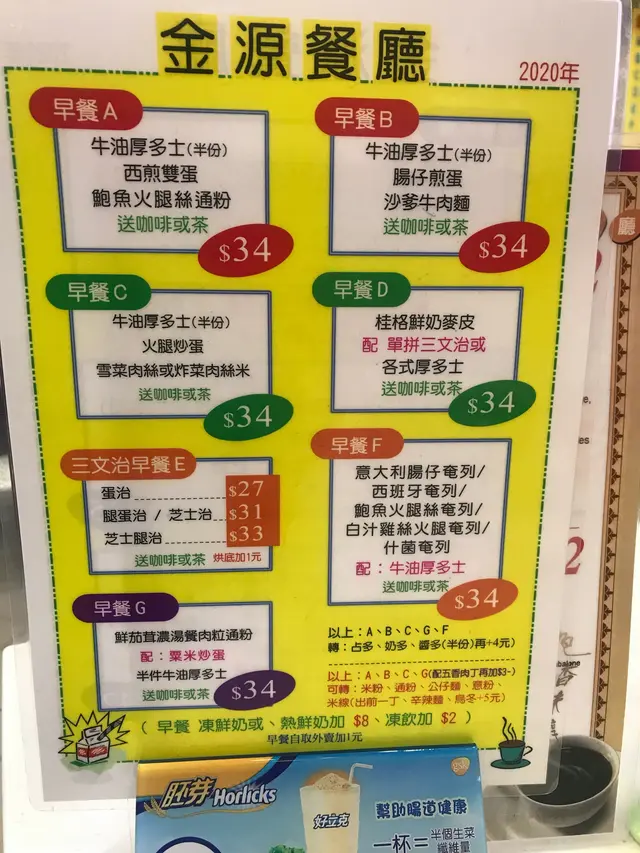 金源餐廳
2020年
早餐A
牛油厚多士(半份)
西煎雙蛋
鮑魚火腿絲通粉
送咖啡或茶
$34
早餐B
牛油厚多士(半份)
腸仔煎蛋
沙爹牛肉麵
送咖啡或茶
$34
早餐C
牛油厚多士(半份)
火腿炒蛋
雪菜肉絲或炸菜肉絲米
送咖啡或茶
$34
早餐D
桂格鮮奶麥皮
配 單拼三文治或
各式厚多士
送咖啡或茶
$34
三文治早餐E
蛋治 $27
腿蛋治 / 芝士治 $31
芝士腿治 $33
送咖啡或茶 烘底加1元
早餐F
意大利腸仔奄列/
西班牙奄列/
鮑魚火腿絲奄列/
白汁雞絲火腿奄列/
什菌奄列
配：牛油厚多士
送咖啡或茶
$34
早餐G
鮮茄茸濃湯餐肉粒通粉
配：粟米炒蛋
半件牛油厚多士
送咖啡或茶
$34
以上：A、B、C、G、F
轉：占多、奶多、醬多(半份)再+4元)
以上：A、B、C、G(配五香肉丁再加$3-)
可轉：米粉、通粉、公仔麵、意粉、
米線(出前一丁、辛辣麵、烏冬+5元)
( 早餐 凍鮮奶或、熱鮮奶加 $8、凍飲加 $2 )
早餐自取外賣加1元
胚芽 Horlicks
好立克
幫助腸道健康
一杯=半個生菜
纖維量
廳
2